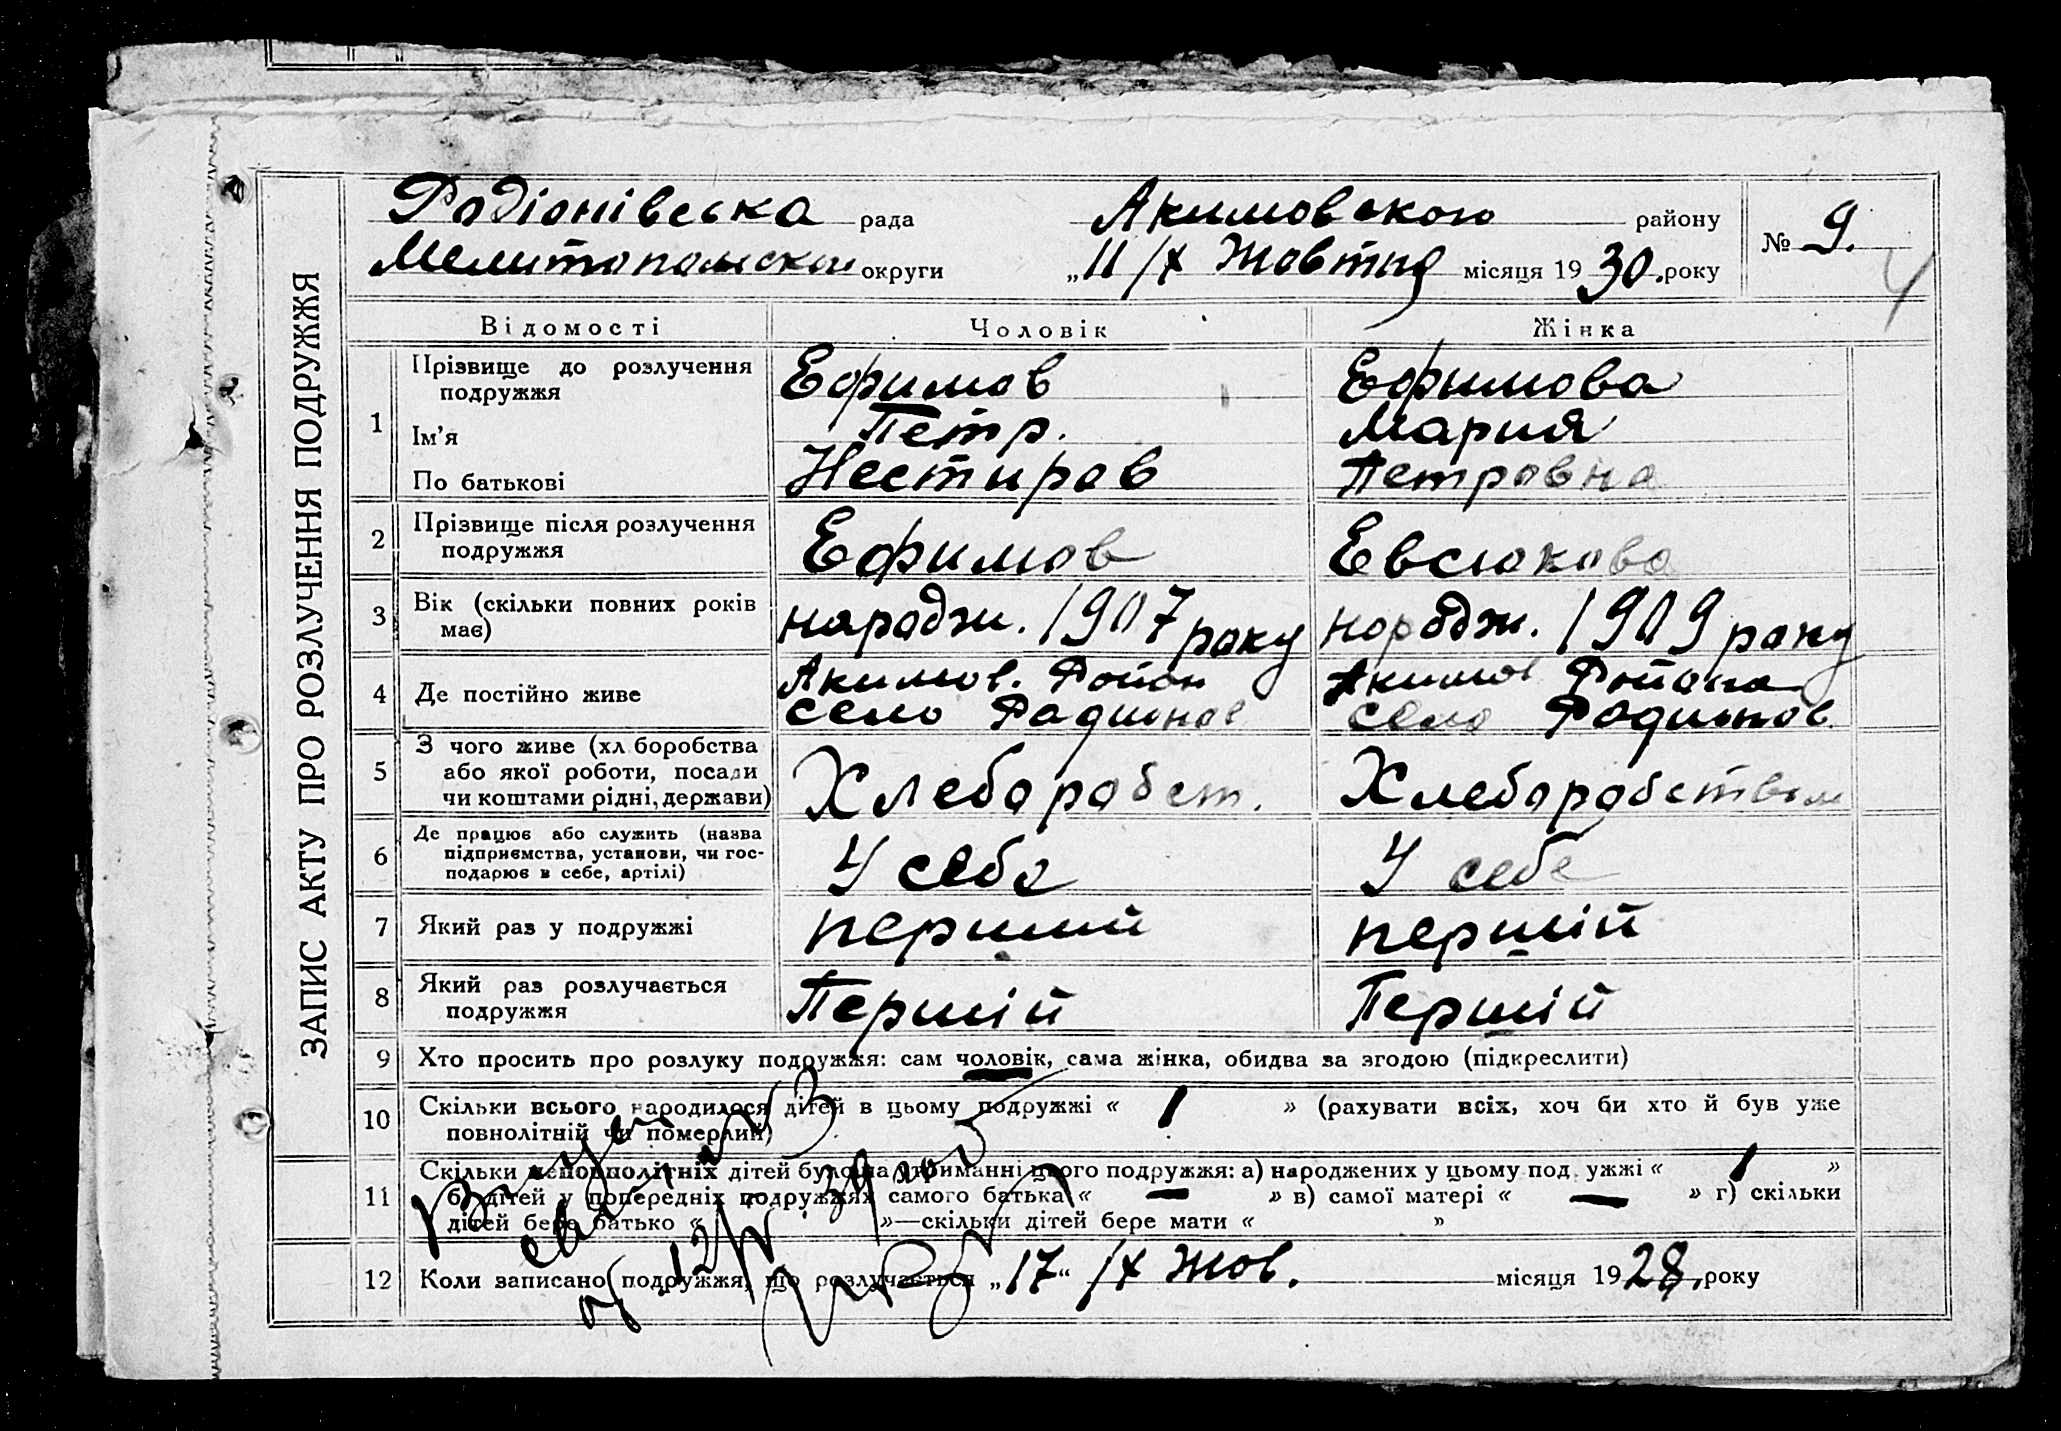 ЗАПИС АКТУ ПРО РОЗЛУЧЕННЯ ПОДРУЖЖЯ
Радіонівська рада Акимовского району
Мелитопольской округи „11/X Жовтня місяця 1930. року
№ 9.
Відомості Чоловік Жінка
1 Прізвище до розлучення подружжя Ефимов Ефимова
Ім’я Петр. Мария
По батькові Нестиров Петровна
2 Прізвище після розлучення подружжя Ефимов Евсюкова
3 Вік (скільки повних років має) народж. 1907 року народж. 1909 року
4 Де постійно живе Акимов. Район Акимов Района
село Радионов село Радионов.
5 З чого живе (хліборобства або якої роботи, посади чи коштами рідні, держави) Хлеборобст. Хлеборобством
6 Де працює або служить (назва підприємства, установи, чи господарює в себе, артілі) У себе У себе
7 Який раз у подружжі перший першій
8 Який раз розлучається подружжя Першій Першій
9 Хто просить про розлуку подружжя: сам чоловік, сама жінка, обидва за згодою (підкреслити)
10 Скільки всього народилося дітей в цьому подружжі « 1 » (рахувати всіх, хоч би хто й був уже
повнолітній чи померлий)
11 Скільки неповнолітніх дітей було на утриманні цього подружжя: а) народжених у цьому подружжі « 1 »
б) дітей у попередніх подружжях самого батька « — » в) самої матері « — » г) скільки
дітей бере батько « »—скільки дітей бере мати « »
12 Коли записано подружжя, що розлучається „17“ /X Жов. місяця 1928, року